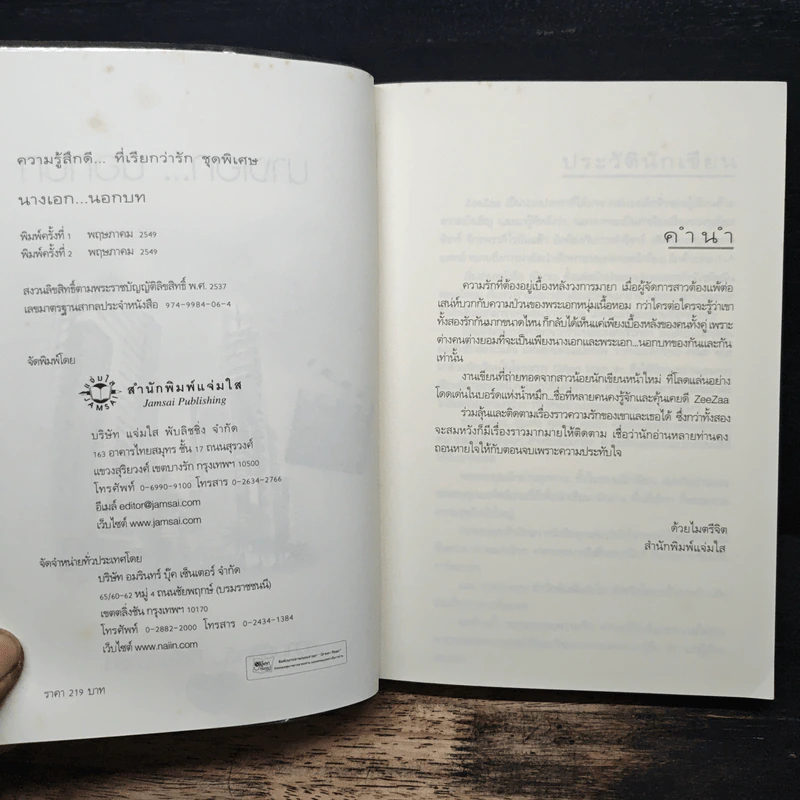 ความรู้สึกดี... ที่เรียกว่ารัก ชุดพิเศษ
นางเอก...นอกบท
พิมพ์ครั้งที่ 1 พฤษภาคม 2549
พิมพ์ครั้งที่ 2 พฤษภาคม 2549
สงวนลิขสิทธิ์ตามพระราชบัญญัติลิขสิทธิ์ พ.ศ. 2537
เลขมาตรฐานสากลประจำหนังสือ 974-9984-06-4
จัดพิมพ์โดย
สำนักพิมพ์แจ่มใส
Jamsai Publishing
บริษัท แจ่มใส พับลิชชิ่ง จำกัด
163 อาคารไทยสมุทร ชั้น 17 ถนนสุรวงศ์
แขวงสุริยวงศ์ เขตบางรัก กรุงเทพฯ 10500
โทรศัพท์ 0-6990-9100 โทรสาร 0-2634-2766
อีเมล์ editor@jamsai.com
เว็บไซต์ www.jamsai.com
จัดจำหน่ายทั่วประเทศโดย
บริษัท อมรินทร์ บุ๊ค เซ็นเตอร์ จำกัด
65/60-62 หมู่ 4 ถนนชัยพฤกษ์ (บรมราชชนนี)
เขตตลิ่งชัน กรุงเทพฯ 10170
โทรศัพท์ 0-2882-2000 โทรสาร 0-2434-1384
เว็บไซต์ www.naiin.com
ราคา 219 บาท
คำนำ
ความรักที่ต้องอยู่เบื้องหลังวงการมายา เมื่อผู้จัดการสาวต้องแพ้ต่อ
เสน่ห์บวกกับความป่วนของพระเอกหนุ่มเนื้อหอม กว่าใครต่อใครจะรู้ว่าเขา
ทั้งสองรักกันมากขนาดไหน ก็กลับได้เห็นแค่เพียงเบื้องหลังของคนทั้งคู่ เพราะ
ต่างคนต่างยอมที่จะเป็นเพียงนางเอกและพระเอก...นอกบทของกันและกัน
เท่านั้น
งานเขียนที่ถ่ายทอดจากสาวน้อยนักเขียนหน้าใหม่ ที่โลดแล่นอย่าง
โดดเด่นในบอร์ดแห่งน้ำหมึก...ชื่อที่หลายคนคงรู้จักและคุ้นเคยดี ZeeZaa
ร่วมลุ้นและติดตามเรื่องราวความรักของเขาและเธอได้ ซึ่งกว่าทั้งสอง
จะสมหวังก็มีเรื่องราวมากมายให้ติดตาม เชื่อว่านักอ่านหลายท่านคง
ถอนหายใจให้กับตอนจบเพราะความประทับใจ
ด้วยไมตรีจิต
สำนักพิมพ์แจ่มใส